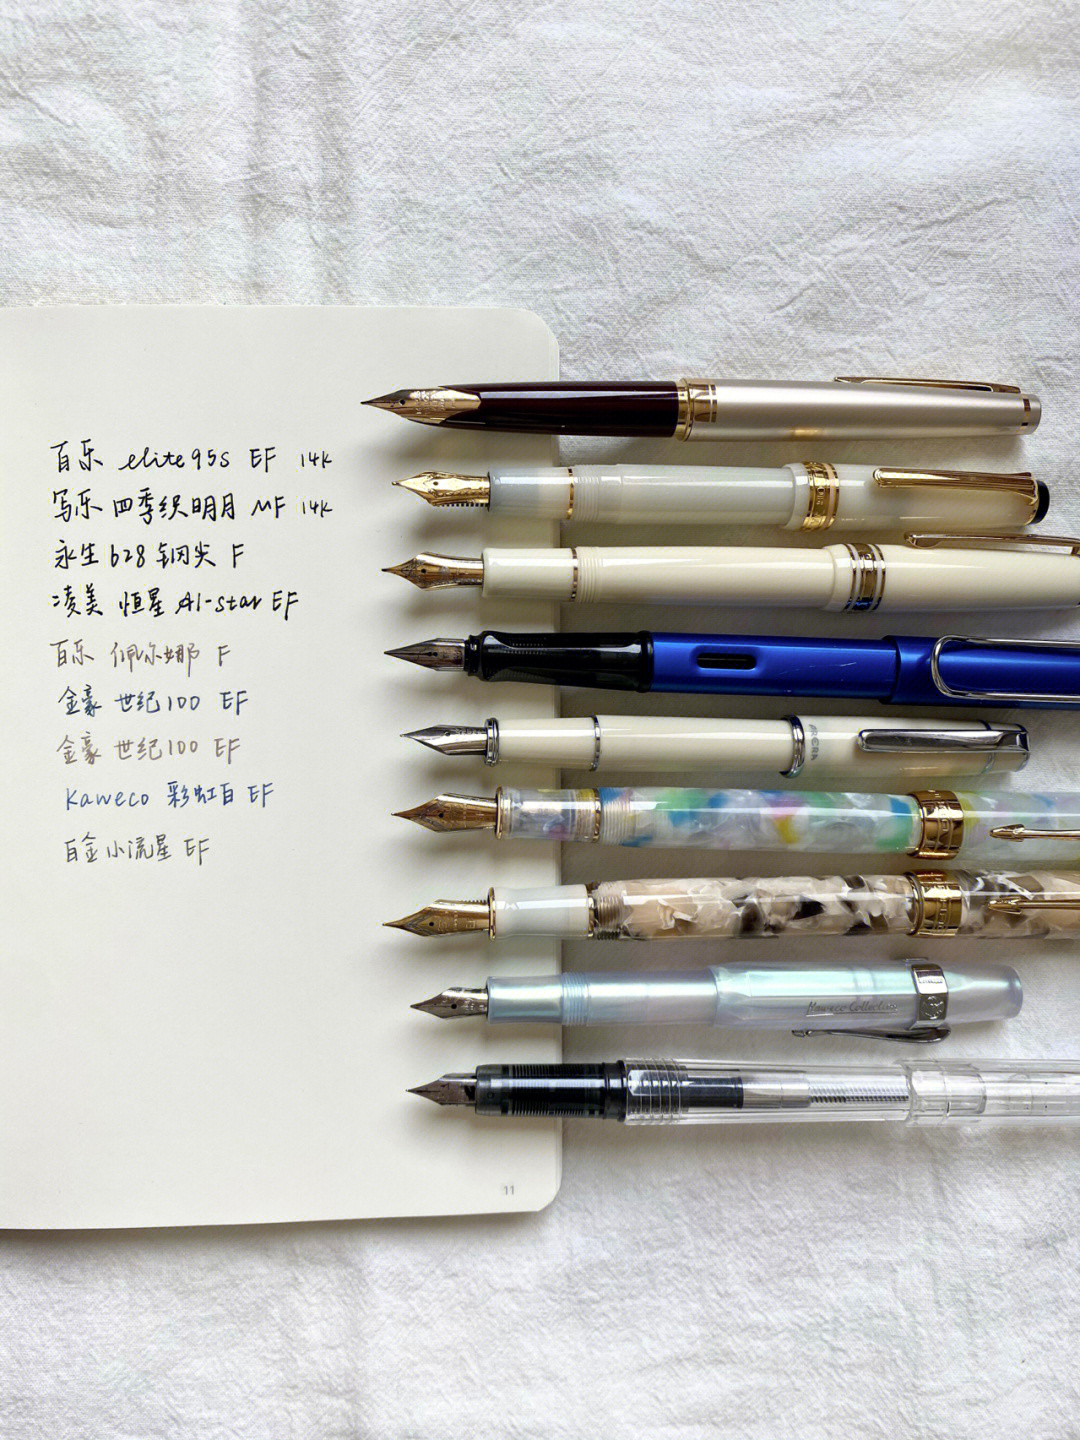 百乐 elite95s EF 14K
写乐 四季织明月 MF 14K
永生 628 钢尖 F
凌美 恒星 Al-star EF
百乐 佩尔娜 F
金豪 世纪100 EF
金豪 世纪100 EF
Kaweco 彩虹白 EF
白金小流星 EF
PRERA
Kaweco Collection
11